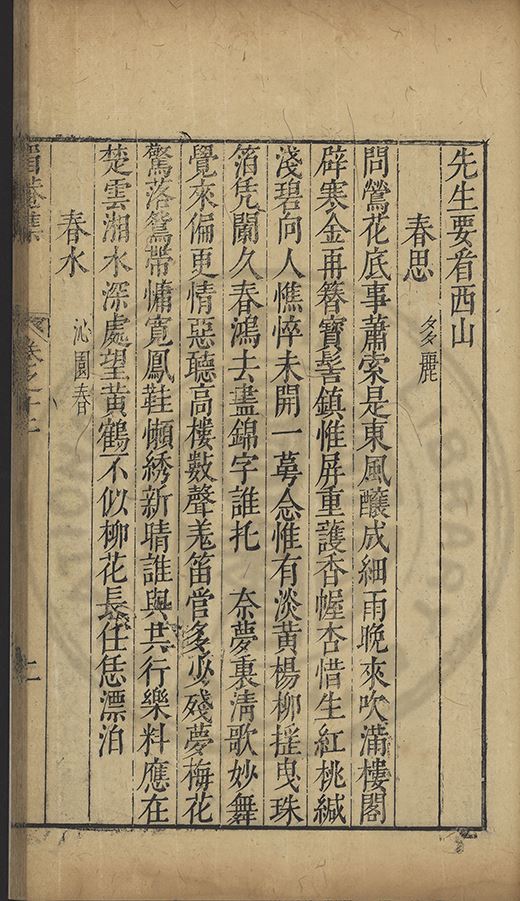 先生要看西山
春思 多麗
問鶯花底事蕭索是東風釀成細雨晚來吹滿樓閣
辟寒金再簪寶髻鎮惟屏重護香幄杏惜生紅桃緘
淺碧向人憔悴未開一萼念惟有淡黃楊柳搖曳珠
箔凭闌久春鴻去盡錦字誰托 奈夢裏清歌妙舞
覺來偏更情惡聽高樓數聲羌笛管多少殘夢梅花
驚落鴛帶慵寬鳳鞋懶綉新晴誰與共行樂料應在
楚雲湘水深處望黃鶴不似柳花長任恁漂泊
春水 沁園春
卷之十二
二